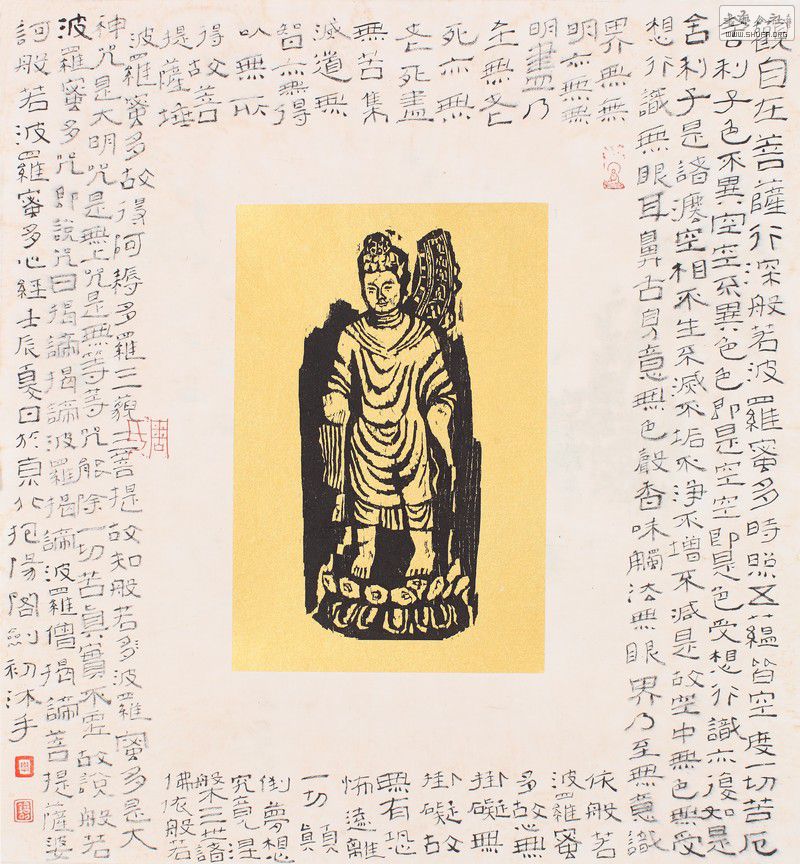 觀自在菩薩行深般若波羅蜜多時照五蘊皆空度一切苦厄
舍利子色不異空空不異色色即是空空即是色受想行識亦復如是
舍利子是諸灋空相不生不滅不垢不淨不增不減是故空中無色無受
想行識無眼耳鼻舌身意無色聲香味觸法無眼界乃至無意識
界無無
明亦無無
明盡乃
至無老
死亦無
老死盡
無苦集
滅道無
智亦無得
以無所
得故菩
提薩埵
依般若
波羅蜜
多故心無
掛礙無
掛礙故
無有恐
怖遠離
一切顛
倒夢想
究竟涅
槃三世諸
佛依般若
波羅蜜多故得阿耨多羅三藐三菩提故知般若多波羅蜜多是大
神咒是大明咒是無上咒是無等等咒能除一切苦真實不虛故說般若
波羅蜜多咒即說咒曰揭諦揭諦波羅揭諦波羅僧揭諦菩提薩婆
訶般若波羅蜜多心經壬辰夏日於京北抱陽閣劍初沐手